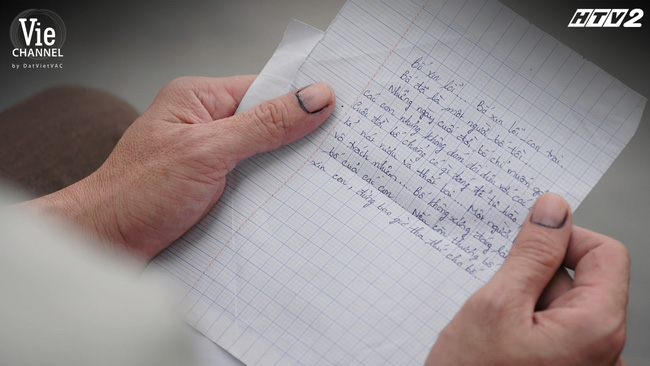 Vie
CHANNEL
by DatVietVAC
HTV2
Bố xin lỗi... Bố xin lỗi con trai
Bố đã là một người bố tồi.
Những ngày cuối đời, bố chỉ muốn
các con nhưng không dám đối diện với các
Cuộc đời bố chẳng có gì đáng để tự hào
bị nát rượu và thất bại... Một người
vô trách nhiệm... Bố không xứng đáng làm
bố của các con. Nếu còn thương bố
xin con, đừng bao giờ tha thứ cho bố.